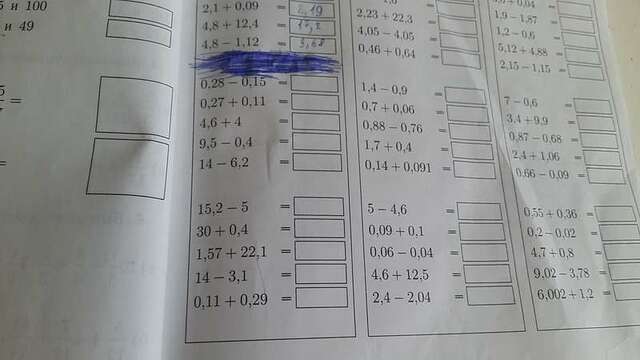 и 100
и 49
=
=
2,1 + 0,09 = 2,19
4,8 + 12,4 = 17,2
4,8 − 1,12 = 3,68
0,28 − 0,15 =
0,27 + 0,11 =
4,6 + 4 =
9,5 − 0,4 =
14 − 6,2 =
15,2 − 5 =
30 + 0,4 =
1,57 + 22,1 =
14 − 3,1 =
0,11 + 0,29 =
2,23 + 22,3 =
4,05 − 4,05 =
0,46 + 0,64 =
1,4 − 0,9 =
0,7 + 0,06 =
0,88 − 0,76 =
1,7 + 0,4 =
0,14 + 0,091 =
5 − 4,6 =
0,09 + 0,1 =
0,06 − 0,04 =
4,6 + 12,5 =
2,4 − 2,04 =
1,9 − 1,87 =
1,2 − 0,6 =
5,12 + 4,88 =
2,15 − 1,15 =
7 − 0,6 =
3,4 + 9,9 =
0,87 − 0,68 =
2,4 + 1,06 =
0,66 − 0,09 =
0,55 + 0,36 =
0,2 − 0,02 =
4,7 + 0,8 =
9,02 − 3,78 =
6,002 + 1,2 =